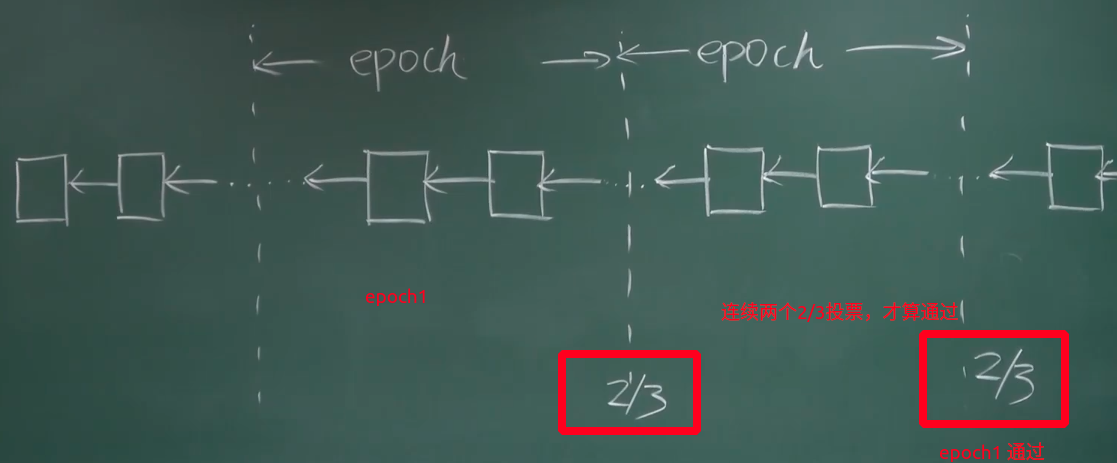 epoch
epoch
epoch1
连续两个2/3投票，才算通过
2/3
2/3
epoch1 通过